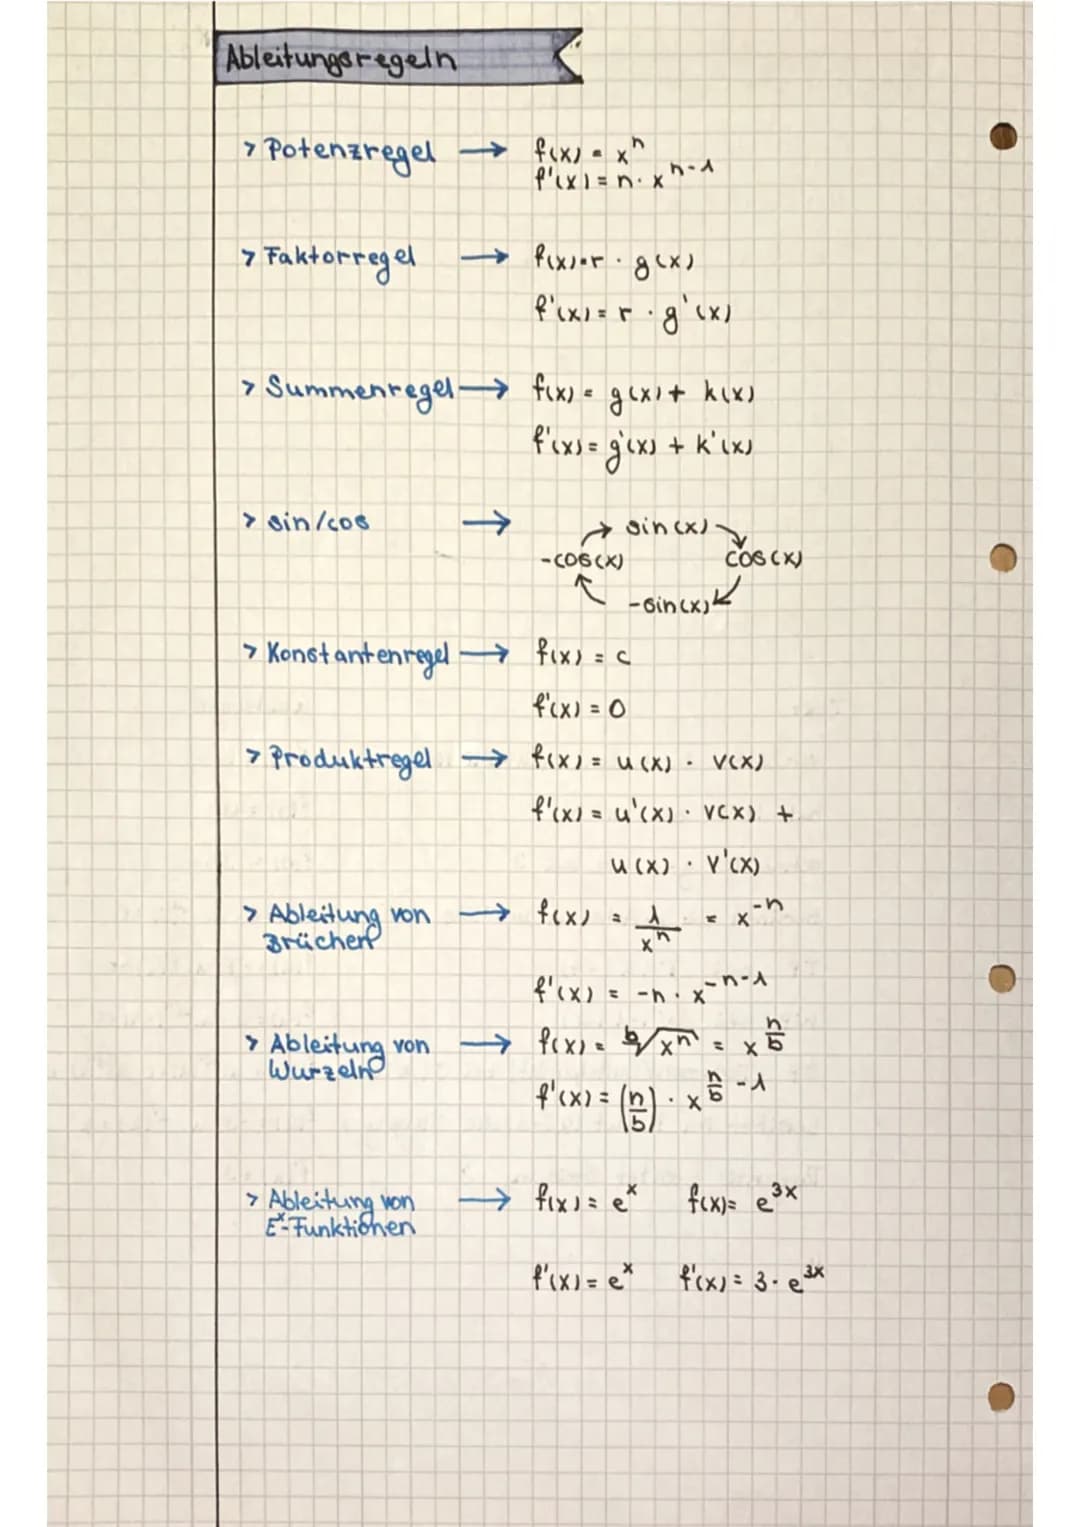 Ableitungsregeln
> Potenzregel → f(x) = xⁿ
f'(x) = n · xⁿ⁻¹
> Faktorregel → f(x) = r · g(x)
f'(x) = r · g'(x)
> Summenregel → f(x) = g(x) + k(x)
f'(x) = g'(x) + k'(x)
> sin/cos →
sin(x)
-cos(x) cos(x)
-sin(x)
> Konstantenregel → f(x) = c
f'(x) = 0
> Produktregel → f(x) = u(x) · v(x)
f'(x) = u'(x) · v(x) +
u(x) · v'(x)
> Ableitung von → f(x) = 1/xⁿ = x⁻ⁿ
Brüchen
f'(x) = -n · x⁻ⁿ⁻¹
> Ableitung von → f(x) = ᵇ√xⁿ = x^(n/b)
Wurzeln
f'(x) = (n/b) · x^(n/b - 1)
> Ableitung von → f(x) = eˣ f(x) = e³ˣ
Eˣ-Funktionen
f'(x) = eˣ f'(x) = 3 · e³ˣ